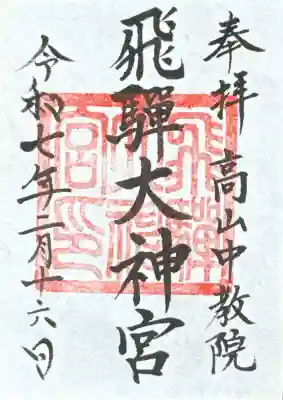 奉拝 高山中教院
飛驒大神宮
令和七年二月十六日